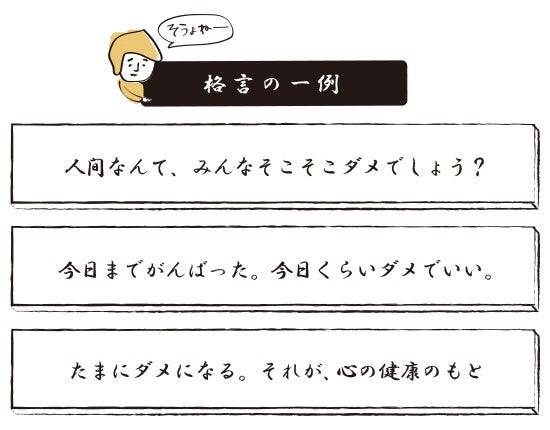 そうよねー
格言の一例
人間なんて、みんなそこそこダメでしょう?
今日までがんばった。今日くらいダメでいい。
たまにダメになる。それが、心の健康のもと